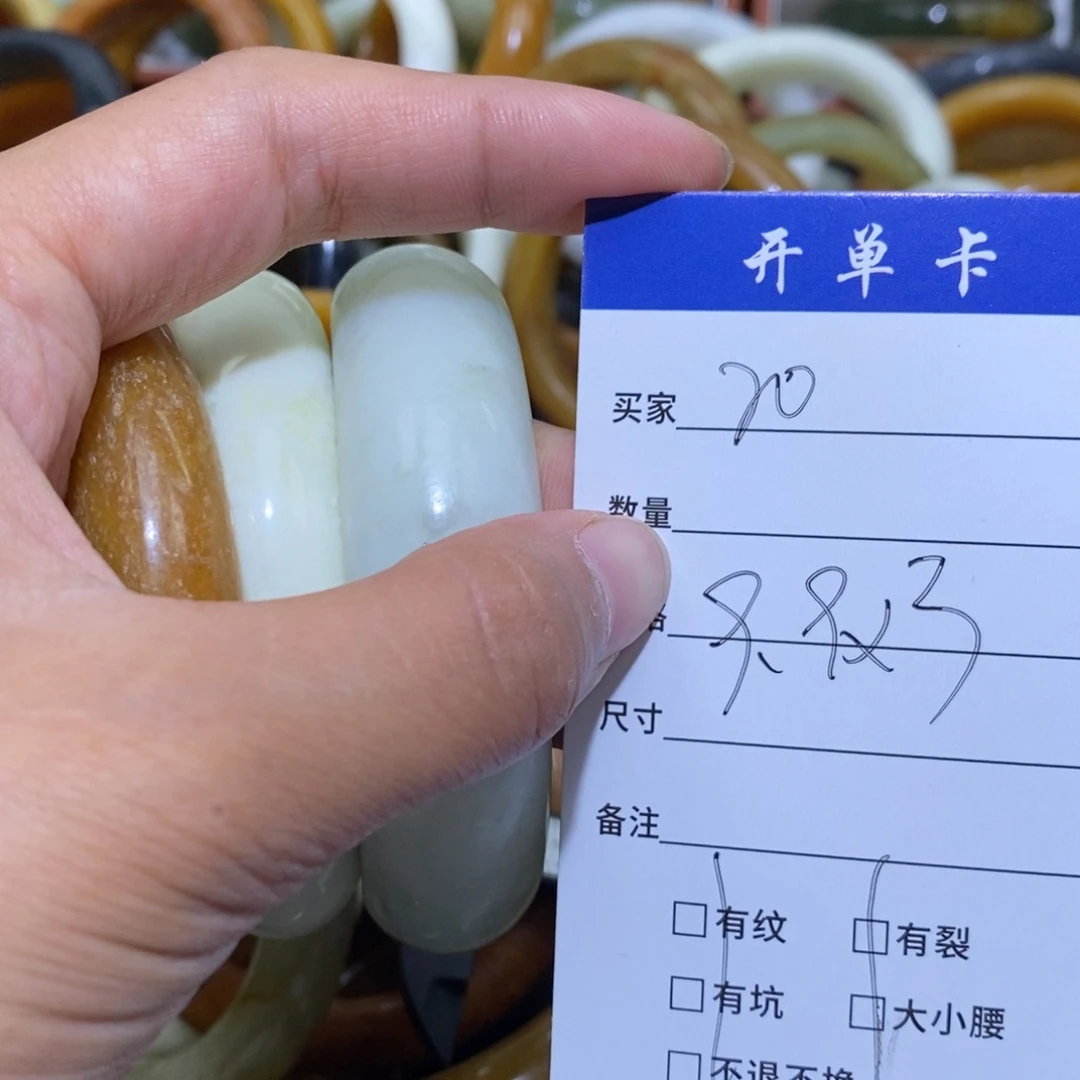 开单卡
买家 20
数量
尺寸
备注
□有纹 □有裂
□有坑 □大小腰
□不退不换